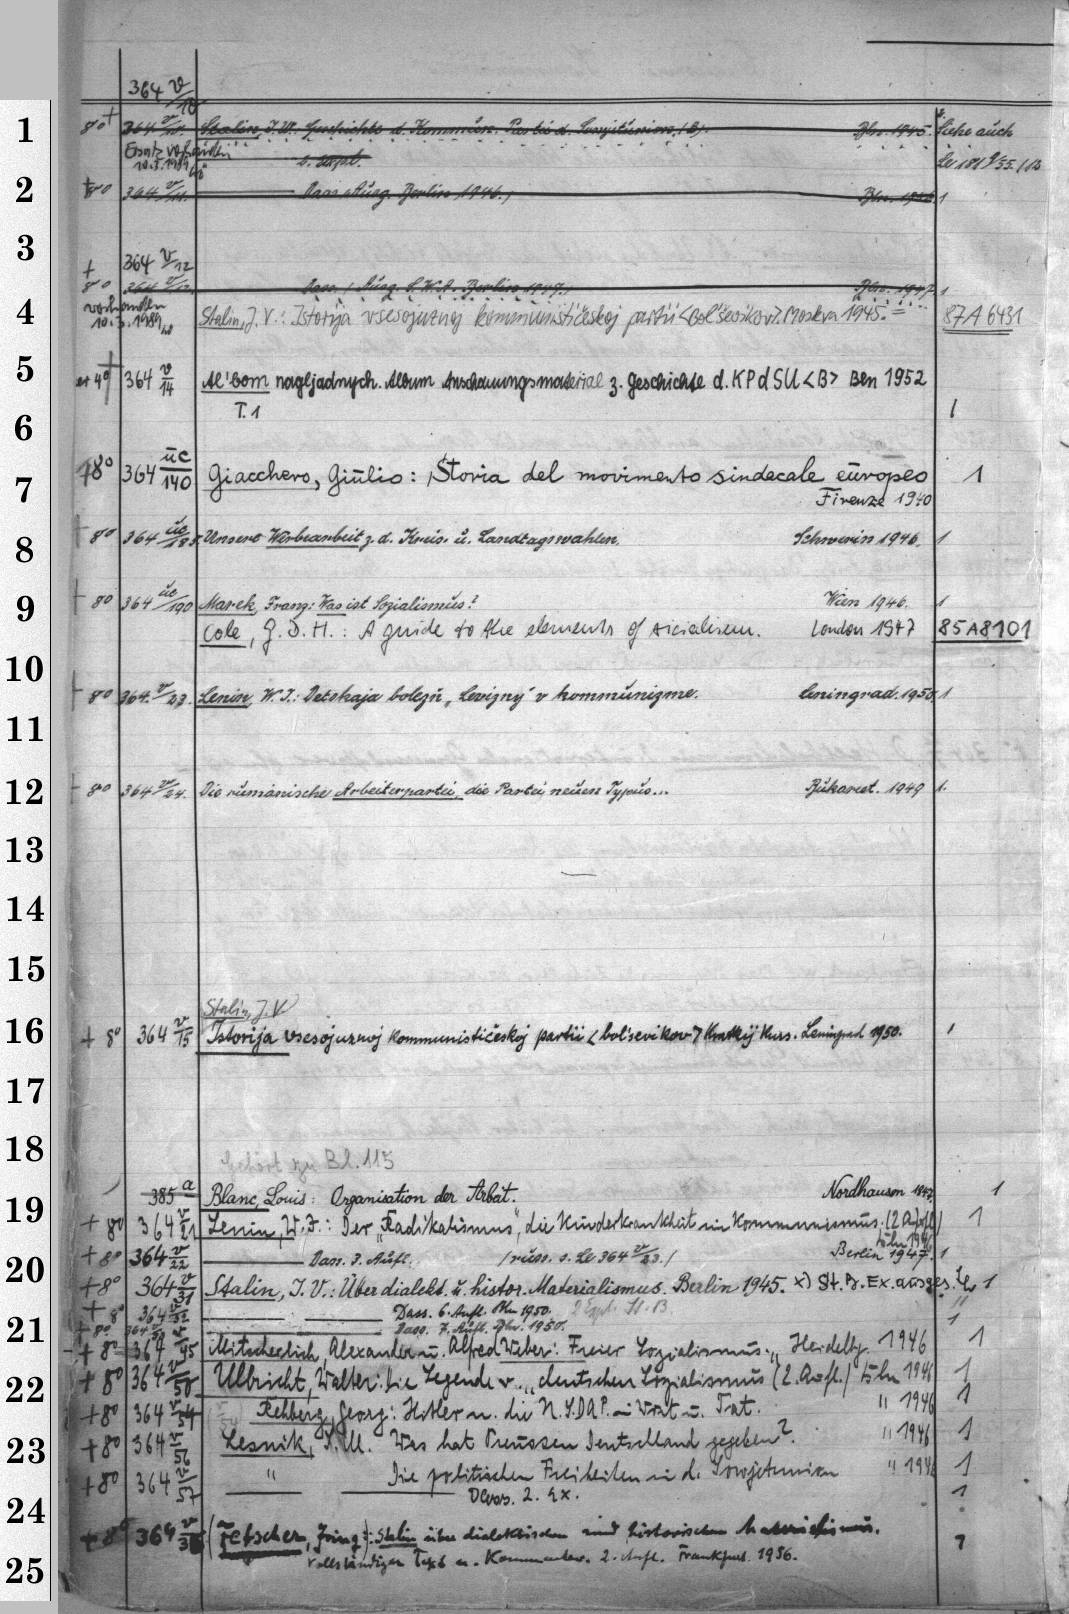 364 v/10
1 8° + 364 v/10. Stalin, J. W.: Geschichte d. Kommun. Partei d. Sowjetunion (B). Bln. 1945. Siehe auch
Ersatz vorhanden 10.3.1989 2. Expl. Le 181 9/55. /13
2 + 8° 364 v/11. Dass. Ausg. Berlin 1946. Bln. 1946 1
3 364 v/12
+ 8° 364 v/12. Dass. Ausg. Berlin 1947. Bln. 1947. 1
vorhanden 10.3.1989
4 Stalin, J. V.: Istorija vsesojuznoj kommunističeskoj partii <Bol'ševikov>. Moskva 1945. 87 A 6431
5 + 4° 364 v/14 Al'bom nagljadnych. Album Anschauungsmaterial z. Geschichte d. KPdSU <B> Bln 1952
T. 1
6 1
+ 8° 364 üc/140 Giacchero, Giulio: Storia del movimento sindecale europeo 1
7 Firenze 1940
8 + 8° 364 üc/185. Unsere Werbearbeit z. d. Kreis- u. Landtagswahlen. Schwerin 1946. 1
9 + 8° 364 üc/190 Marek, Franz: Was ist Sozialismus? Wien 1946. 1
Cole, G. D. H.: A guide to the elements of socialism. London 1947 85 A 8101
10 + 8° 364. v/23. Lenin, W. I.: Detskaja bolezń „Levizny" v kommunizme. Leningrad. 1950. 1
11
12 + 8° 364 v/24. Die rumänische Arbeiterpartei, die Partei neuen Typus... Bukarest. 1949 1.
13
14
15
Stalin, J. V
16 + 8° 364 v/15 Istorija vsesojuznoj kommunističeskoj partii <bol'ševikov> Kratkij kurs. Leningrad 1950. 1
17
18 Gehört zu Bl. 115
385 a Blanc, Louis: Organisation der Arbat. Nordhausen 1947. 1
19 + 8° 364 v/21 Lenin, W. I.: Der „Radikalismus", die Kinderkrankheit im Kommunismus. (2. Aufl.) 1
Köln 1946
+ 8° 364 v/22 Dass. 3. Aufl. /russ. s. Le 364 v/23./ Berlin 1947. 1
20 + 8° 364 v/31 Stalin, I. V.: Über dialekt. u. histor. Materialismus. Berlin 1945. x) St. B. Ex. ausges. 1
+ 8° 364 v/32 Dass. 6. Aufl. Bln 1950. "
21 + 8° 364 Dass. 7. Aufl. Bln. 1950. 1
+ 8° 364 v/45 Mitscherlich, Alexander u. Alfred Weber: Freier Sozialismus. Heidelbg. 1946 1
22 + 8° 364 v/50 Ulbricht, Walter: Die Legende v. „deutschen Sozialismus" (2. Aufl.) Köln 1946 1
+ 8° 364 v/54 Rehberg, Georg: Hitler u. die N.S.D.A.P. in Wort u. Tat. " 1946 1
23 + 8° 364 v/56 Lesnik, I. M. Was hat Preussen Deutschland gegeben? " 1946 1
+ 8° 364 v/57 " Die politischen Freiheiten in d. Sowjetunion " 1946 1
Dass. 2. Ex. 1
24 + 8° 364 (Fetscher, Iring): Stalin über dialektischen und historischen Materialismus. 1
25 Vollständiger Text u. Kommentar. 2. Aufl. Frankfurt 1956.